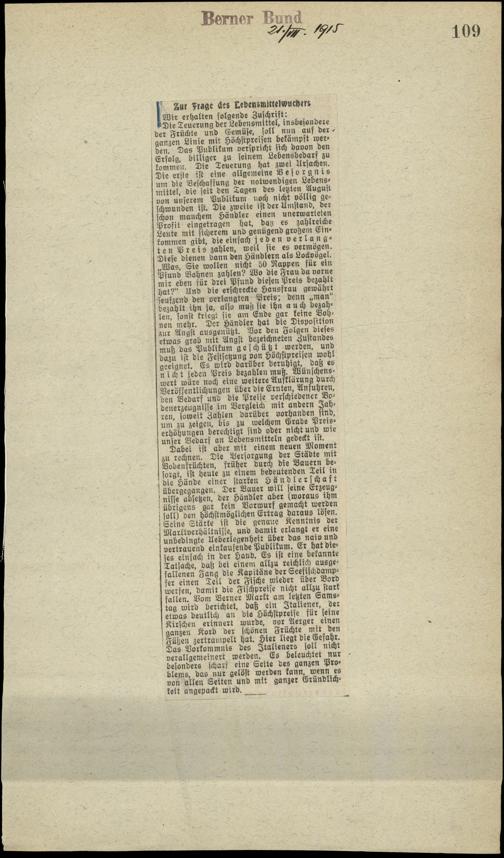 Berner Bund
21./VII. 1915
109
Zur Frage des Lebensmittelwuchers
Wir erhalten folgende Zuschrift:
Die Teuerung der Lebensmittel, insbesondere
der Früchte und Gemüse, soll nun auf der
ganzen Linie mit Höchstpreisen bekämpft wer-
den. Das Publikum verspricht sich davon den
Erfolg, billiger zu seinem Lebensbedarf zu
kommen. Die Teuerung hat zwei Ursachen.
Die erste ist eine allgemeine Besorgnis
um die Beschaffung der notwendigen Lebens-
mittel, die seit den Tagen des letzten August
von unserem Publikum noch nicht völlig ge-
schwunden ist. Die zweite ist der Umstand, der
schon manchem Händler einen unerwarteten
Profit eingetragen hat, daß es zahlreiche
Leute mit sicherem und genügend großem Ein-
kommen gibt, die einfach jeden verlang-
ten Preis zahlen, weil sie es vermögen.
Diese dienen dann den Händlern als Lockvögel.
„Was, Sie wollen nicht 50 Rappen für ein
Pfund Bohnen zahlen? Wo die Frau da vorne
mir eben für drei Pfund diesen Preis bezahlt
hat?" Und die erschreckte Hausfrau gewährt
seufzend den verlangten Preis; denn „man"
bezahlt ihn ja, also muß sie ihn auch bezah-
len, sonst kriegt sie am Ende gar keine Boh-
nen mehr. Der Händler hat die Disposition
zur Angst ausgenützt. Vor den Folgen dieses
etwas grob mit Angst bezeichneten Zustandes
muß das Publikum geschützt werden, und
dazu ist die Festsetzung von Höchstpreisen wohl
geeignet. Es wird darüber beruhigt, daß es
nicht jeden Preis bezahlen muß. Wünschens-
wert wäre noch eine weitere Aufklärung durch
Veröffentlichungen über die Ernten, Anfuhren,
den Bedarf und die Preise verschiedener Bo-
denerzeugnisse im Vergleich mit andern Jah-
ren, soweit Zahlen darüber vorhanden sind,
um zu zeigen, bis zu welchem Grade Preis-
erhöhungen berechtigt sind oder nicht und wie
unser Bedarf an Lebensmitteln gedeckt ist.
Dabei ist aber mit einem neuen Moment
zu rechnen. Die Versorgung der Städte mit
Bodenfrüchten, früher durch die Bauern be-
sorgt, ist heute zu einem bedeutenden Teil in
die Hände einer starken Händlerschaft
übergegangen. Der Bauer will seine Erzeug-
nisse absetzen, der Händler aber (woraus ihm
übrigens gar kein Vorwurf gemacht werden
soll) den höchstmöglichen Ertrag daraus lösen.
Seine Stärke ist die genaue Kenntnis der
Marktverhältnisse, und damit erlangt er eine
unbedingte Ueberlegenheit über das naiv und
vertrauend einkaufende Publikum. Er hat die-
ses einfach in der Hand. Es ist eine bekannte
Tatsache, daß bei einem allzu reichlich ausge-
fallenen Fang die Kapitäne der Seefischdamp-
fer einen Teil der Fische wieder über Bord
werfen, damit die Fischpreise nicht allzu stark
fallen. Vom Berner Markt am letzten Sams-
tag wird berichtet, daß ein Italiener, der
etwas deutlich an die Höchstpreise für seine
Kirschen erinnert wurde, vor Aerger einen
ganzen Korb der schönen Früchte mit den
Füßen zertrampelt hat. Hier liegt die Gefahr.
Das Vorkommnis des Italieners soll nicht
verallgemeinert werden. Es beleuchtet nur
besonders scharf eine Seite des ganzen Pro-
blems, das nur gelöst werden kann, wenn es
von allen Seiten und mit ganzer Gründlich-
keit angepackt wird.